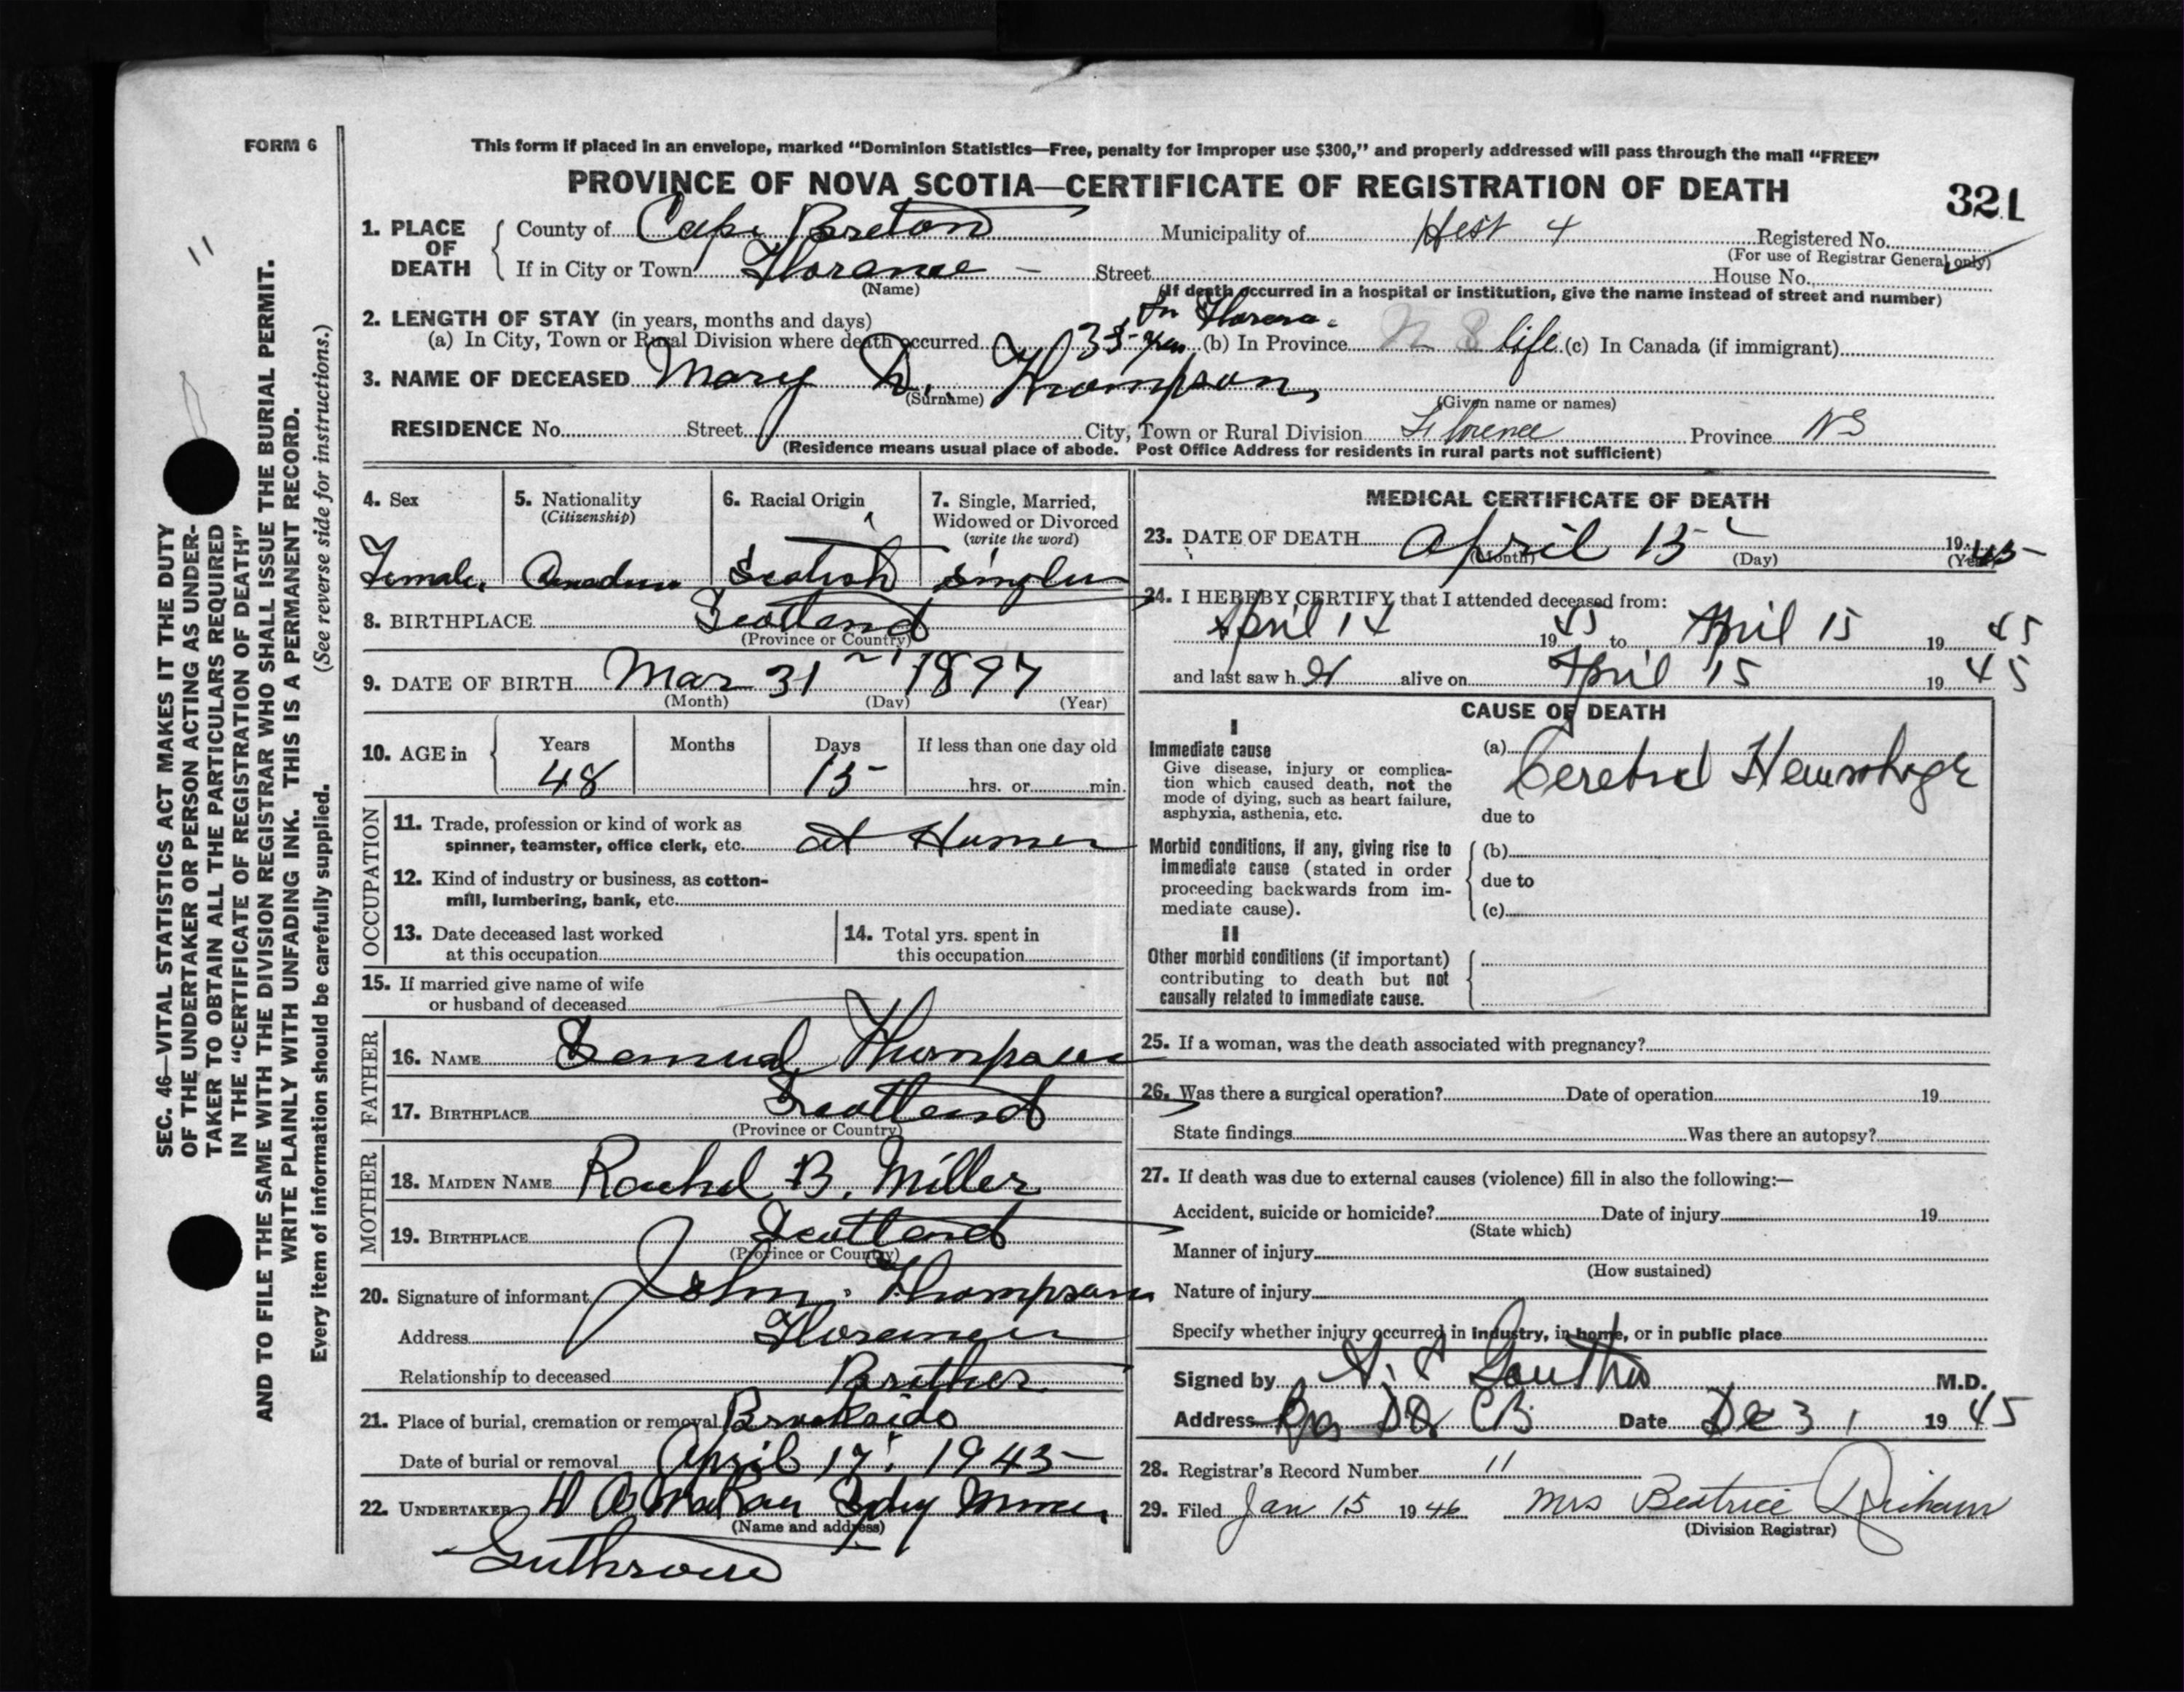 FORM 6
This form if placed in an envelope, marked "Dominion Statistics—Free, penalty for improper use $300," and properly addressed will pass through the mail "FREE"
PROVINCE OF NOVA SCOTIA—CERTIFICATE OF REGISTRATION OF DEATH
321
1. PLACE OF DEATH
County of Cape Breton Municipality of 4 Registered No.
(For use of Registrar General only)
If in City or Town Florance – Street House No.
(Name)
(If death occurred in a hospital or institution, give the name instead of street and number)
2. LENGTH OF STAY (in years, months and days)
(a) In City, Town or Rural Division where death occurred 35 yrs (b) In Province N S life (c) In Canada (if immigrant)
3. NAME OF DECEASED Mary D. Thompson
(Surname) (Given name or names)
RESIDENCE No. Street City, Town or Rural Division Florence Province NS
(Residence means usual place of abode. Post Office Address for residents in rural parts not sufficient)
4. Sex
Female
5. Nationality
(Citizenship)
Canadian
6. Racial Origin
Scotish
7. Single, Married, Widowed or Divorced
(write the word)
Single
8. BIRTHPLACE Scotland
(Province or Country)
9. DATE OF BIRTH Mar 31 1897
(Month) (Day) (Year)
10. AGE in
Years Months Days If less than one day old
48 15 hrs. or min.
OCCUPATION
11. Trade, profession or kind of work as
spinner, teamster, office clerk, etc. at Home
12. Kind of industry or business, as cotton-
mill, lumbering, bank, etc.
13. Date deceased last worked
at this occupation
14. Total yrs. spent in
this occupation
15. If married give name of wife
or husband of deceased
FATHER
16. NAME Samual Thompson
17. BIRTHPLACE Scotland
(Province or Country)
MOTHER
18. MAIDEN NAME Rachel B. Miller
19. BIRTHPLACE Scotland
(Province or Country)
20. Signature of informant John Thompson
Address Florence
Relationship to deceased Brother
21. Place of burial, cremation or removal Brookside
Date of burial or removal April 17 1945
22. UNDERTAKER Sydney Mines
(Name and address)
MEDICAL CERTIFICATE OF DEATH
23. DATE OF DEATH April 15 1945
(Month) (Day) (Year)
24. I HEREBY CERTIFY that I attended deceased from:
April 14 1945 to April 15 19 45
and last saw her alive on April 15 19 45
CAUSE OF DEATH
I
Immediate cause
Give disease, injury or complica-
tion which caused death, not the
mode of dying, such as heart failure,
asphyxia, asthenia, etc.
(a) Cerebral Hemorhage
due to
Morbid conditions, if any, giving rise to
immediate cause (stated in order
proceeding backwards from im-
mediate cause).
(b)
due to
(c)
II
Other morbid conditions (if important)
contributing to death but not
causally related to immediate cause.
25. If a woman, was the death associated with pregnancy?
26. Was there a surgical operation? Date of operation 19
State findings Was there an autopsy?
27. If death was due to external causes (violence) fill in also the following:—
Accident, suicide or homicide? Date of injury 19
(State which)
Manner of injury
(How sustained)
Nature of injury
Specify whether injury occurred in industry, in home, or in public place
Signed by M.D.
Address CB Date Dec 31 19 45
28. Registrar's Record Number 11
29. Filed Jan 15 1946 Mrs Beatrice
(Division Registrar)
11
SEC. 46—VITAL STATISTICS ACT MAKES IT THE DUTY
OF THE UNDERTAKER OR PERSON ACTING AS UNDER-
TAKER TO OBTAIN ALL THE PARTICULARS REQUIRED
IN THE "CERTIFICATE OF REGISTRATION OF DEATH"
AND TO FILE THE SAME WITH THE DIVISION REGISTRAR WHO SHALL ISSUE THE BURIAL PERMIT.
WRITE PLAINLY WITH UNFADING INK. THIS IS A PERMANENT RECORD.
Every item of information should be carefully supplied. (See reverse side for instructions.)